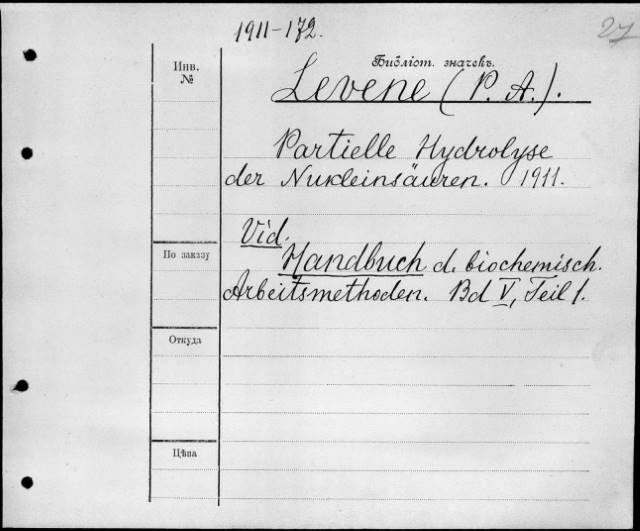 1911-172.
27
Инв.
№
Библіот. значекъ.
Levene (P. A.).
Partielle Hydrolyse
der Nukleinsäuren. 1911.
Vid.
По заказу
Handbuch d. biochemisch.
Arbeitsmethoden. Bd V, Teil 1.
Откуда
Цѣна